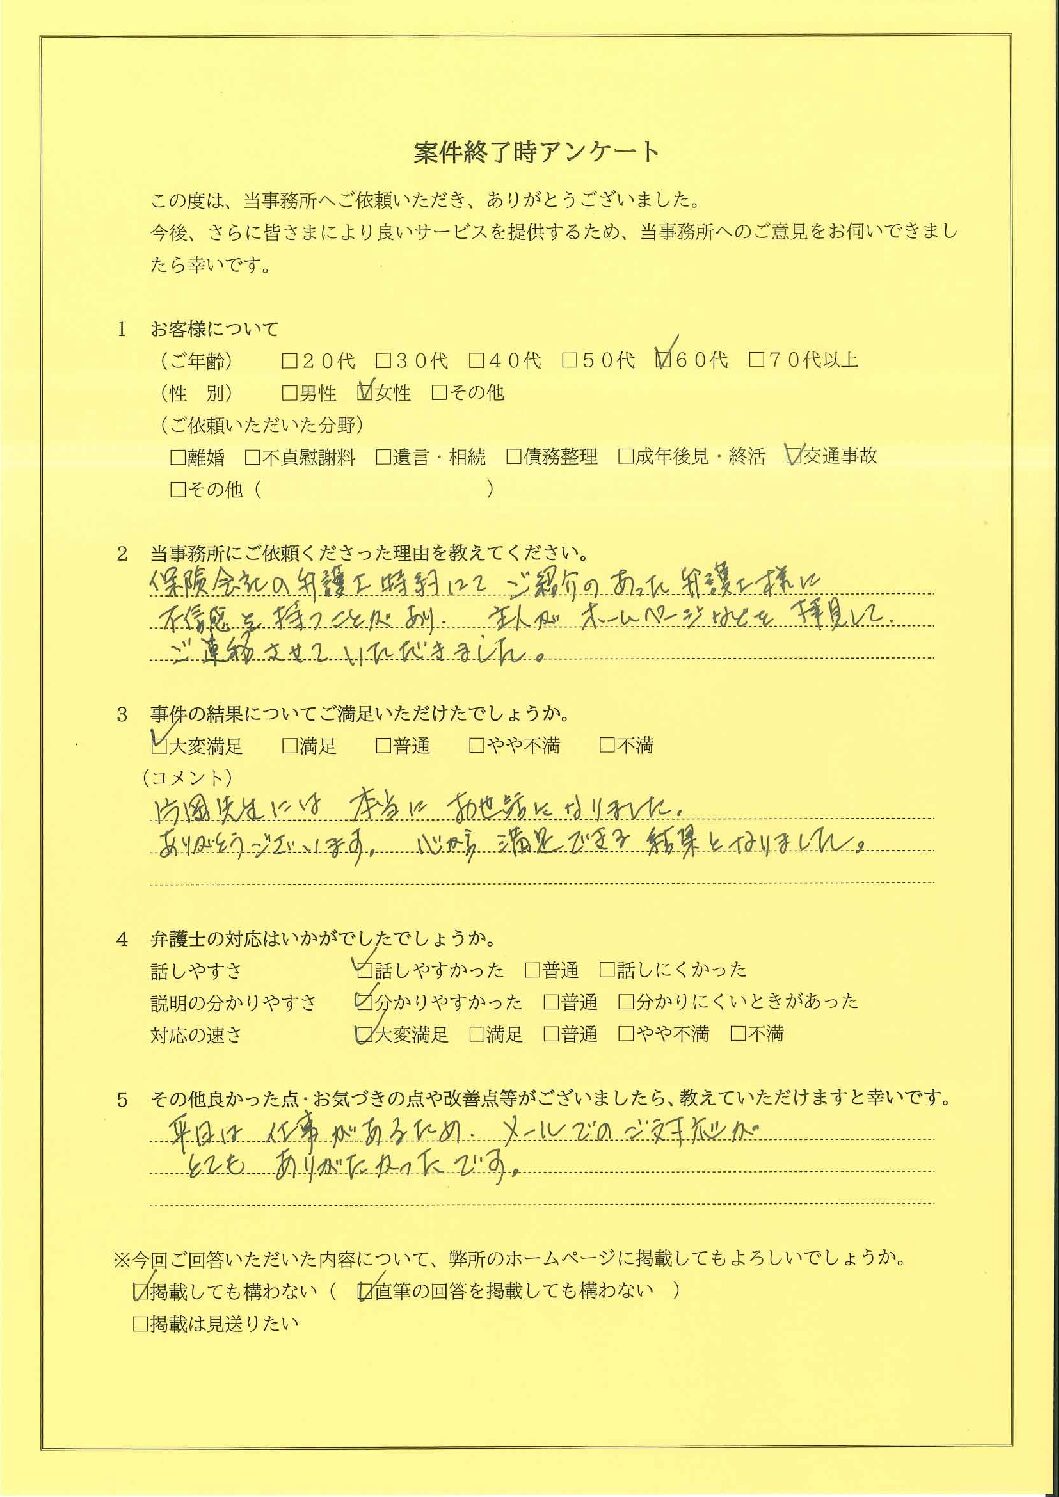 案件終了時アンケート
この度は、当事務所へご依頼いただき、ありがとうございました。
今後、さらに皆さまにより良いサービスを提供するため、当事務所へのご意見をお伺いできまし
たら幸いです。
1 お客様について
（ご年齢） □20代 □30代 □40代 □50代 ☑60代 □70代以上
（性 別） □男性 ☑女性 □その他
（ご依頼いただいた分野）
□離婚 □不貞慰謝料 □遺言・相続 □債務整理 □成年後見・終活 ☑交通事故
□その他（ ）
2 当事務所にご依頼くださった理由を教えてください。
保険会社の弁護士特約にて ご紹介のあった弁護士様に
不信感を持つことがあり、主人がホームページなどを拝見して、
ご連絡させていただきました。
3 事件の結果についてご満足いただけたでしょうか。
☑大変満足 □満足 □普通 □やや不満 □不満
（コメント）
片岡先生には 本当に お世話になりました。
ありがとうございます。 心から 満足できる 結果となりました。
4 弁護士の対応はいかがでしたでしょうか。
話しやすさ ☑話しやすかった □普通 □話しにくかった
説明の分かりやすさ ☑分かりやすかった □普通 □分かりにくいときがあった
対応の速さ ☑大変満足 □満足 □普通 □やや不満 □不満
5 その他良かった点・お気づきの点や改善点等がございましたら、教えていただけますと幸いです。
平日は 仕事があるため、メールでのご対応が
とても ありがたかったです。
※今回ご回答いただいた内容について、弊所のホームページに掲載してもよろしいでしょうか。
☑掲載しても構わない（ ☑直筆の回答を掲載しても構わない ）
□掲載は見送りたい